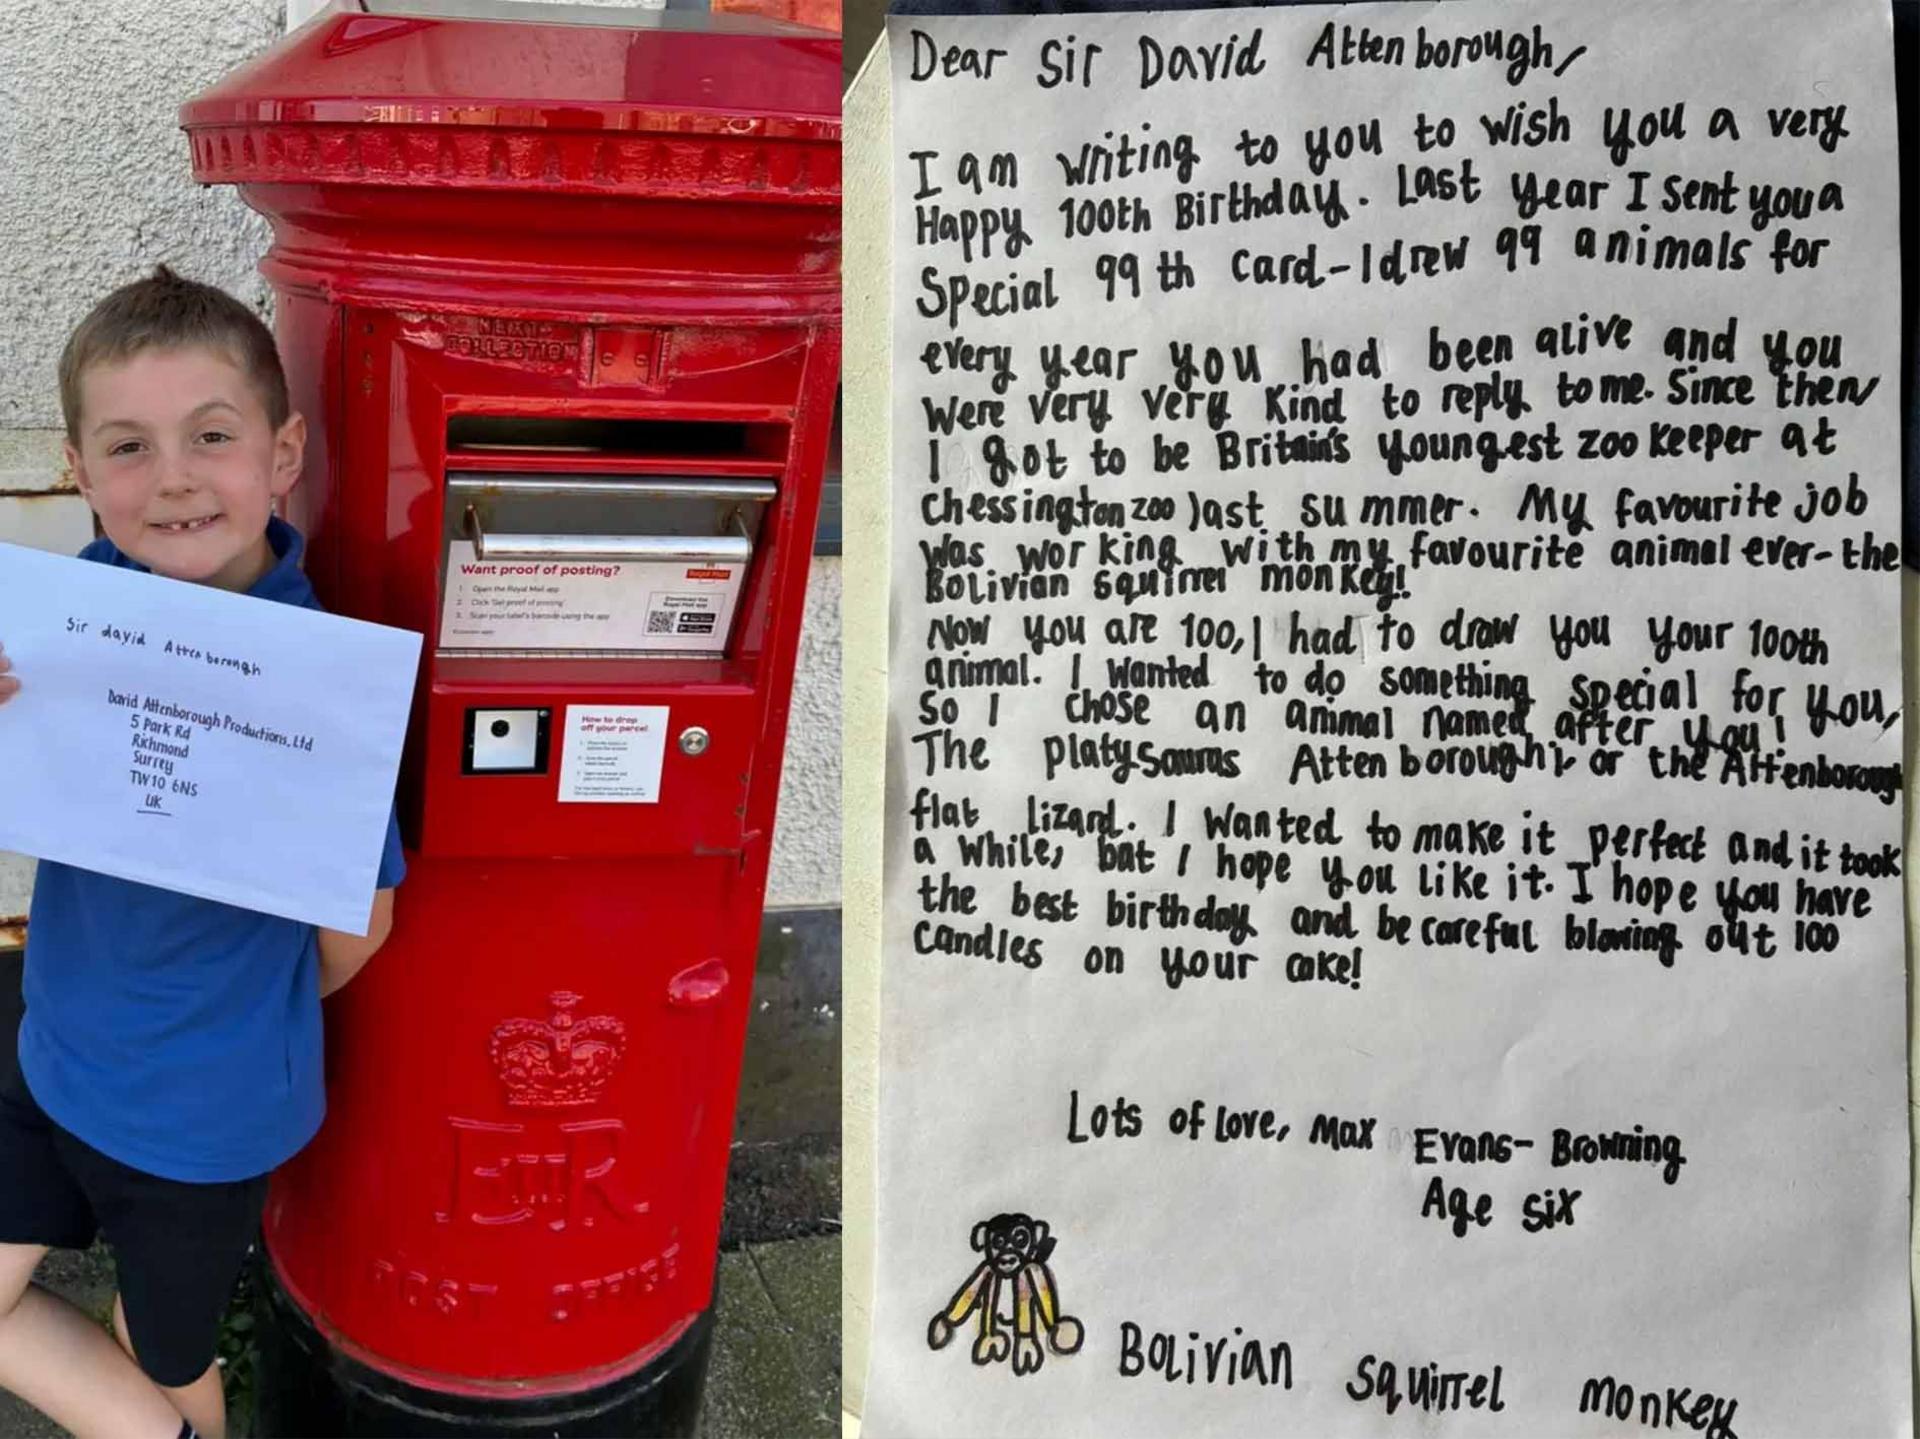 NEXT
COLLECTION
Want proof of posting?
Royal Mail
1. Open the Royal Mail app
2. Click 'Get proof of posting'
3. Scan your label's barcode using the app
Download the
Royal Mail app
How to drop
off your parcel
Sir david Attenborough
David Attenborough Productions, Ltd
5 Park Rd
Richmond
Surrey
TW10 6NS
UK
EIIR
POST OFFICE
Dear Sir David Attenborough,
I am writing to you to wish you a very
Happy 100th Birthday. Last year I sent you a
Special 99th card-I drew 99 animals for
every year you had been alive and you
were very very kind to reply to me. Since then,
I got to be Britain's youngest zoo keeper at
Chessington zoo last summer. My favourite job
was working with my favourite animal ever-the
Bolivian squirrel monkey!
Now you are 100, I had to draw you your 100th
animal. I wanted to do something special for you,
So I chose an animal named after you!
The platysauras Attenboroughi or the Attenborough
flat lizard. I wanted to make it perfect and it took
a while, but I hope you like it. I hope you have
the best birthday and be careful blowing out 100
candles on your cake!
Lots of love, Max Evans-Browning
Age six
Bolivian squirrel monkey